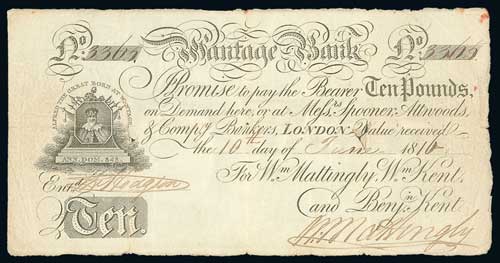 No. 3365 Wantage Bank No. 3365
I Promise to pay the Bearer Ten Pounds,
on Demand here, or at Messrs Spooner, Attwoods,
& Compy. Bankers, LONDON Value received
the 10th day of June 1816
ALFRED THE GREAT BORN AT
ANN. DOM. 849.
For Wm Mattingly, Wm Kent,
Entd
and Benjn Kent
Ten.
Wm Mattingly